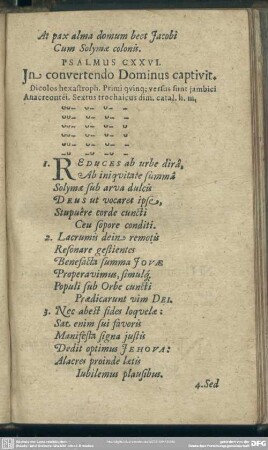 At pax alma domum beet Jacobi
Cum Solymæ colonis.
PSALMUS CXXVI.
Jn convertendo Dominus captivit.
Dicolos hexastroph. Primi quinq; versus sunt jambici
Anacreontēi. Sextus trochaicus dim. catal. h. m,
1. REDUCES ab urbe dirâ,
Ab iniqvitate summâ
Solymæ sub arva dulcis
DEUS ut vocaret ipse,
Stupuêre corde cuncti
Ceu sopore conditi.
2. Lacrumis dein remotis
Resonare gestientes
Benefacta summa JOVÆ
Properavimus, simulq;
Populi sub Orbe cuncti
Prædicarunt vim DEI.
3. Nec abest fides loquelæ:
Sat enim sui favoris
Manifesta signa justis
Dedit optimus JEHOVA:
Alacres proinde lætis
Iubilemus plausibus.
4. Sed